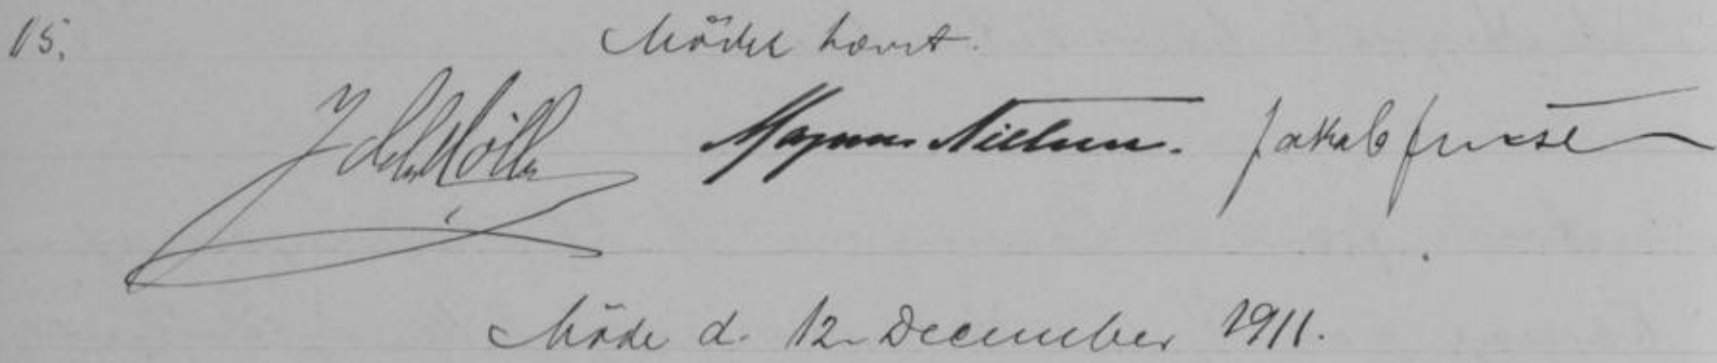 15. Mödet hævet.
Magnus Nielsen. Jakob Jensen
Möde d. 12 December 1911.